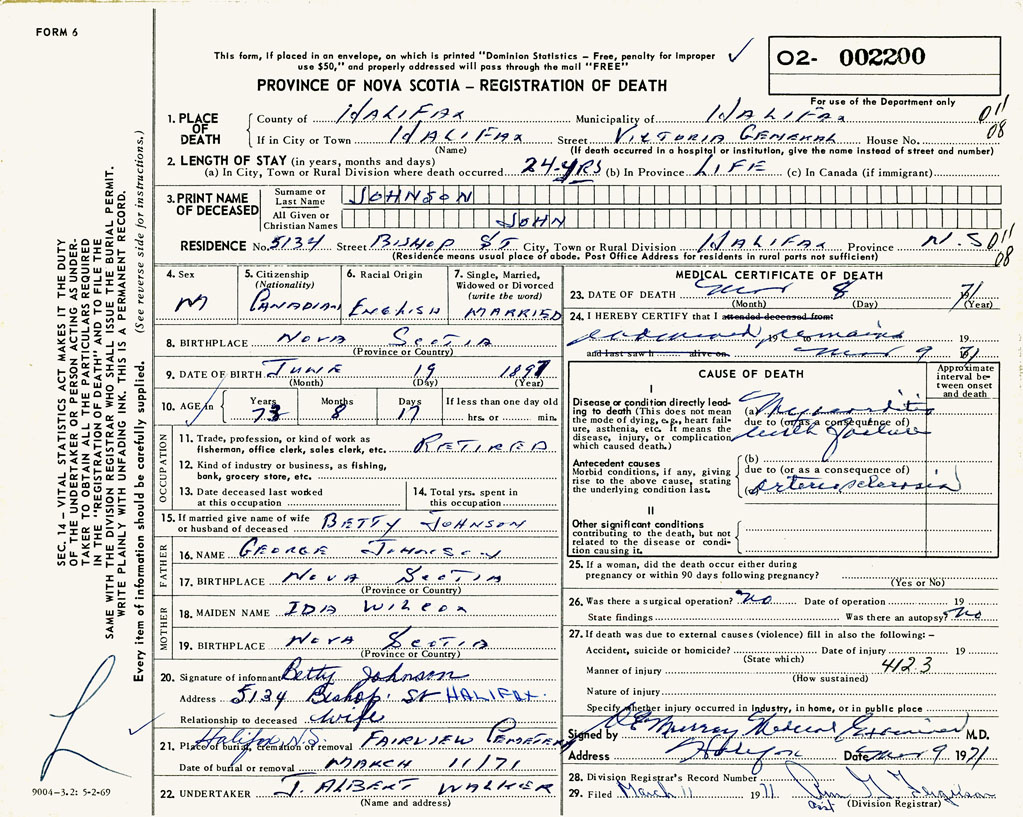 FORM 6
This form, if placed in an envelope, on which is printed "Dominion Statistics – Free, penalty for improper
use $50," and properly addressed will pass through the mail "FREE"
PROVINCE OF NOVA SCOTIA – REGISTRATION OF DEATH
02- 002200
For use of the Department only
011
08
1. PLACE OF DEATH
County of HALIFAX Municipality of HALIFAX
If in City or Town HALIFAX Street VICTORIA GENERAL House No.
(Name) (If death occurred in a hospital or institution, give the name instead of street and number)
2. LENGTH OF STAY (in years, months and days)
(a) In City, Town or Rural Division where death occurred 24-YRS (b) In Province LIFE (c) In Canada (if immigrant)
3. PRINT NAME OF DECEASED
Surname or Last Name JOHNSON
All Given or Christian Names JOHN
RESIDENCE No. 5134 Street BISHOP ST City, Town or Rural Division HALIFAX Province N.S 011
08
(Residence means usual place of abode. Post Office Address for residents in rural parts not sufficient)
4. Sex
M
5. Citizenship
(Nationality)
CANADIAN
6. Racial Origin
ENGLISH
7. Single, Married,
Widowed or Divorced
(write the word)
MARRIED
8. BIRTHPLACE NOVA SCOTIA
(Province or Country)
9. DATE OF BIRTH JUNE 19 1897
(Month) (Day) (Year)
10. AGE in Years 73 Months 8 Days 17 If less than one day old
hrs. or min.
OCCUPATION
11. Trade, profession, or kind of work as
fisherman, office clerk, sales clerk, etc. RETIRED
12. Kind of industry or business, as fishing,
bank, grocery store, etc.
13. Date deceased last worked
at this occupation
14. Total yrs. spent in
this occupation
15. If married give name of wife
or husband of deceased BETTY JOHNSON
FATHER
16. NAME GEORGE JOHNSON
17. BIRTHPLACE NOVA SCOTIA
(Province or Country)
MOTHER
18. MAIDEN NAME IDA WILCOX
19. BIRTHPLACE NOVA SCOTIA
(Province or Country)
20. Signature of informant Betty Johnson
Address 5134 Bishop St HALIFAX
Relationship to deceased wife
Halifax, N.S.
21. Place of burial, cremation or removal FAIRVIEW CEMETERY
Date of burial or removal MARCH 11/71
22. UNDERTAKER J. ALBERT WALKER
(Name and address)
MEDICAL CERTIFICATE OF DEATH
23. DATE OF DEATH Mar 8 71
(Month) (Day) (Year)
24. I HEREBY CERTIFY that I attended deceased from
remains 19 to 19
and last saw h alive on Mar 9 71
CAUSE OF DEATH
Approximate
interval be-
tween onset
and death
I
Disease or condition directly lead-
ing to death (This does not mean
the mode of dying, e.g., heart fail-
ure, asthenia, etc. It means the
disease, injury, or complication
which caused death.)
(a) Myocarditis
due to (or as a consequence of)
with failure
Antecedent causes
Morbid conditions, if any, giving
rise to the above cause, stating
the underlying condition last.
(b)
due to (or as a consequence of)
(c) Arteriosclerosis
II
Other significant conditions
contributing to the death, but not
related to the disease or condi-
tion causing it.
25. If a woman, did the death occur either during
pregnancy or within 90 days following pregnancy?
(Yes or No)
26. Was there a surgical operation? No Date of operation 19
State findings Was there an autopsy? No
27. If death was due to external causes (violence) fill in also the following: –
Accident, suicide or homicide? Date of injury 19
(State which)
Manner of injury 412.3
(How sustained)
Nature of injury
Specify whether injury occurred in industry, in home, or in public place
Signed by Murray Medical Examiner M.D.
Address Halifax Date Mar 9 1971
28. Division Registrar's Record Number
29. Filed March 11 1971 Ferguson
Asst (Division Registrar)
SEC. 14 – VITAL STATISTICS ACT MAKES IT THE DUTY
OF THE UNDERTAKER OR PERSON ACTING AS UNDER-
TAKER TO OBTAIN ALL THE PARTICULARS REQUIRED
IN THE "REGISTRATION OF DEATH" AND TO FILE THE
SAME WITH THE DIVISION REGISTRAR WHO SHALL ISSUE THE BURIAL PERMIT.
WRITE PLAINLY WITH UNFADING INK. THIS IS A PERMANENT RECORD.
Every item of information should be carefully supplied. (See reverse side for instructions.)
9004–3.2: 5-2-69